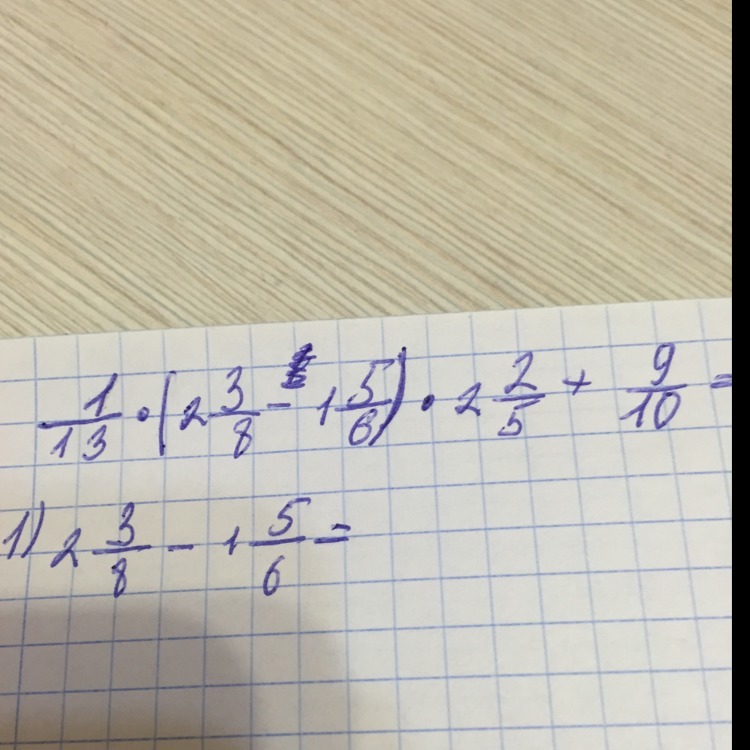 1/13 · (2 3/8 - 1 5/6) · 2 2/5 + 9/10 =
1) 2 3/8 - 1 5/6 =